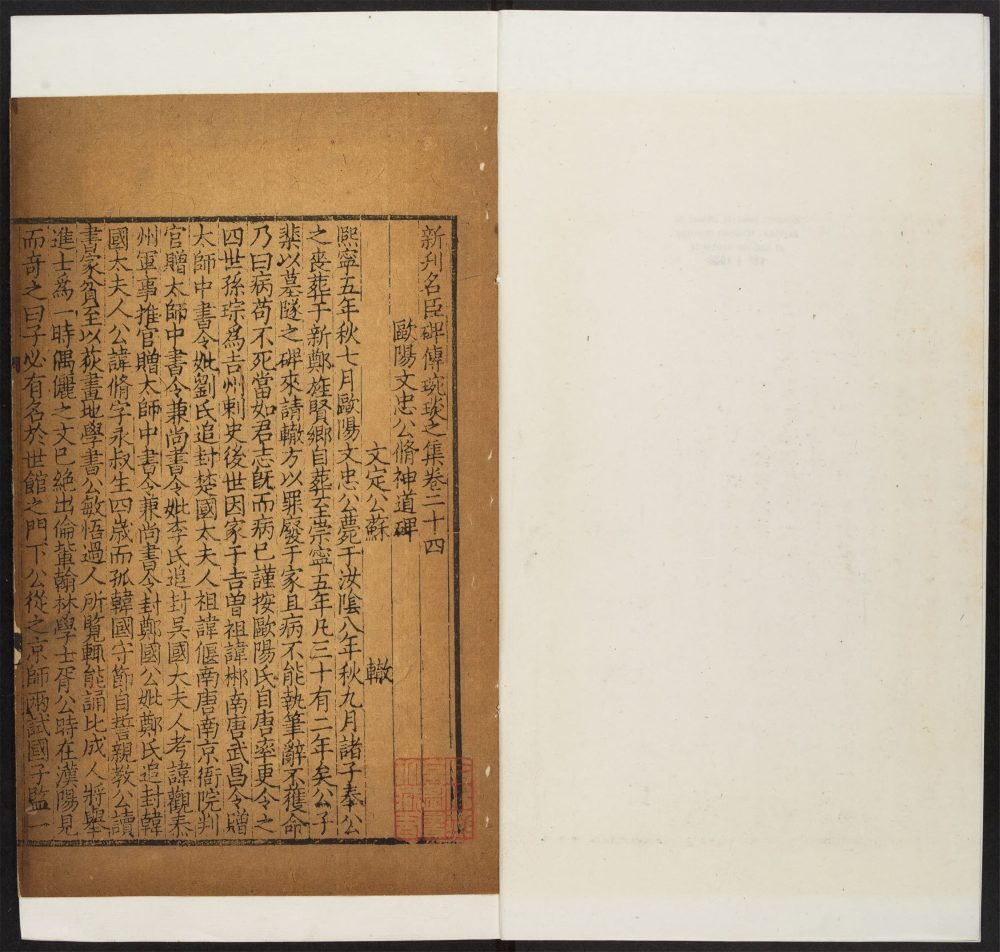 新刋名臣碑傳琬琰之集卷二十四
歐陽文忠公脩神道碑
文定公蘇 轍
熙寧五年秋七月歐陽文忠公薨于汝陰八年秋九月諸子奉公
之喪葬于新鄭旌賢鄉自葬至崇寧五年凡三十有二年矣公子
棐以墓隧之碑來請轍方以罪廢于家且病不能執筆辭不獲命
乃曰病苟不死當如君志旣而病已謹按歐陽氏自唐率更令之
四世孫琮爲吉州刺史後世因家于吉曽祖諱郴南唐武昌令贈
太師中書令妣劉氏追封楚國太夫人祖諱偃南唐南京衙院判
官贈太師中書令兼尚書令妣李氏追封吳國太夫人考諱觀泰
州軍事推官贈太師中書令兼尚書令封鄭國公妣鄭氏追封韓
國太夫人公諱脩字永叔生四歲而孤韓國守節自誓親敎公讀
書家貧至以荻畫地學書公敏悟過人所覽輒能誦比成人將舉
進士爲一時偶儷之文已絕出倫輩翰林學士胥公時在漢陽見
而奇之曰子必有名於世館之門下公從之京師兩試國子監一